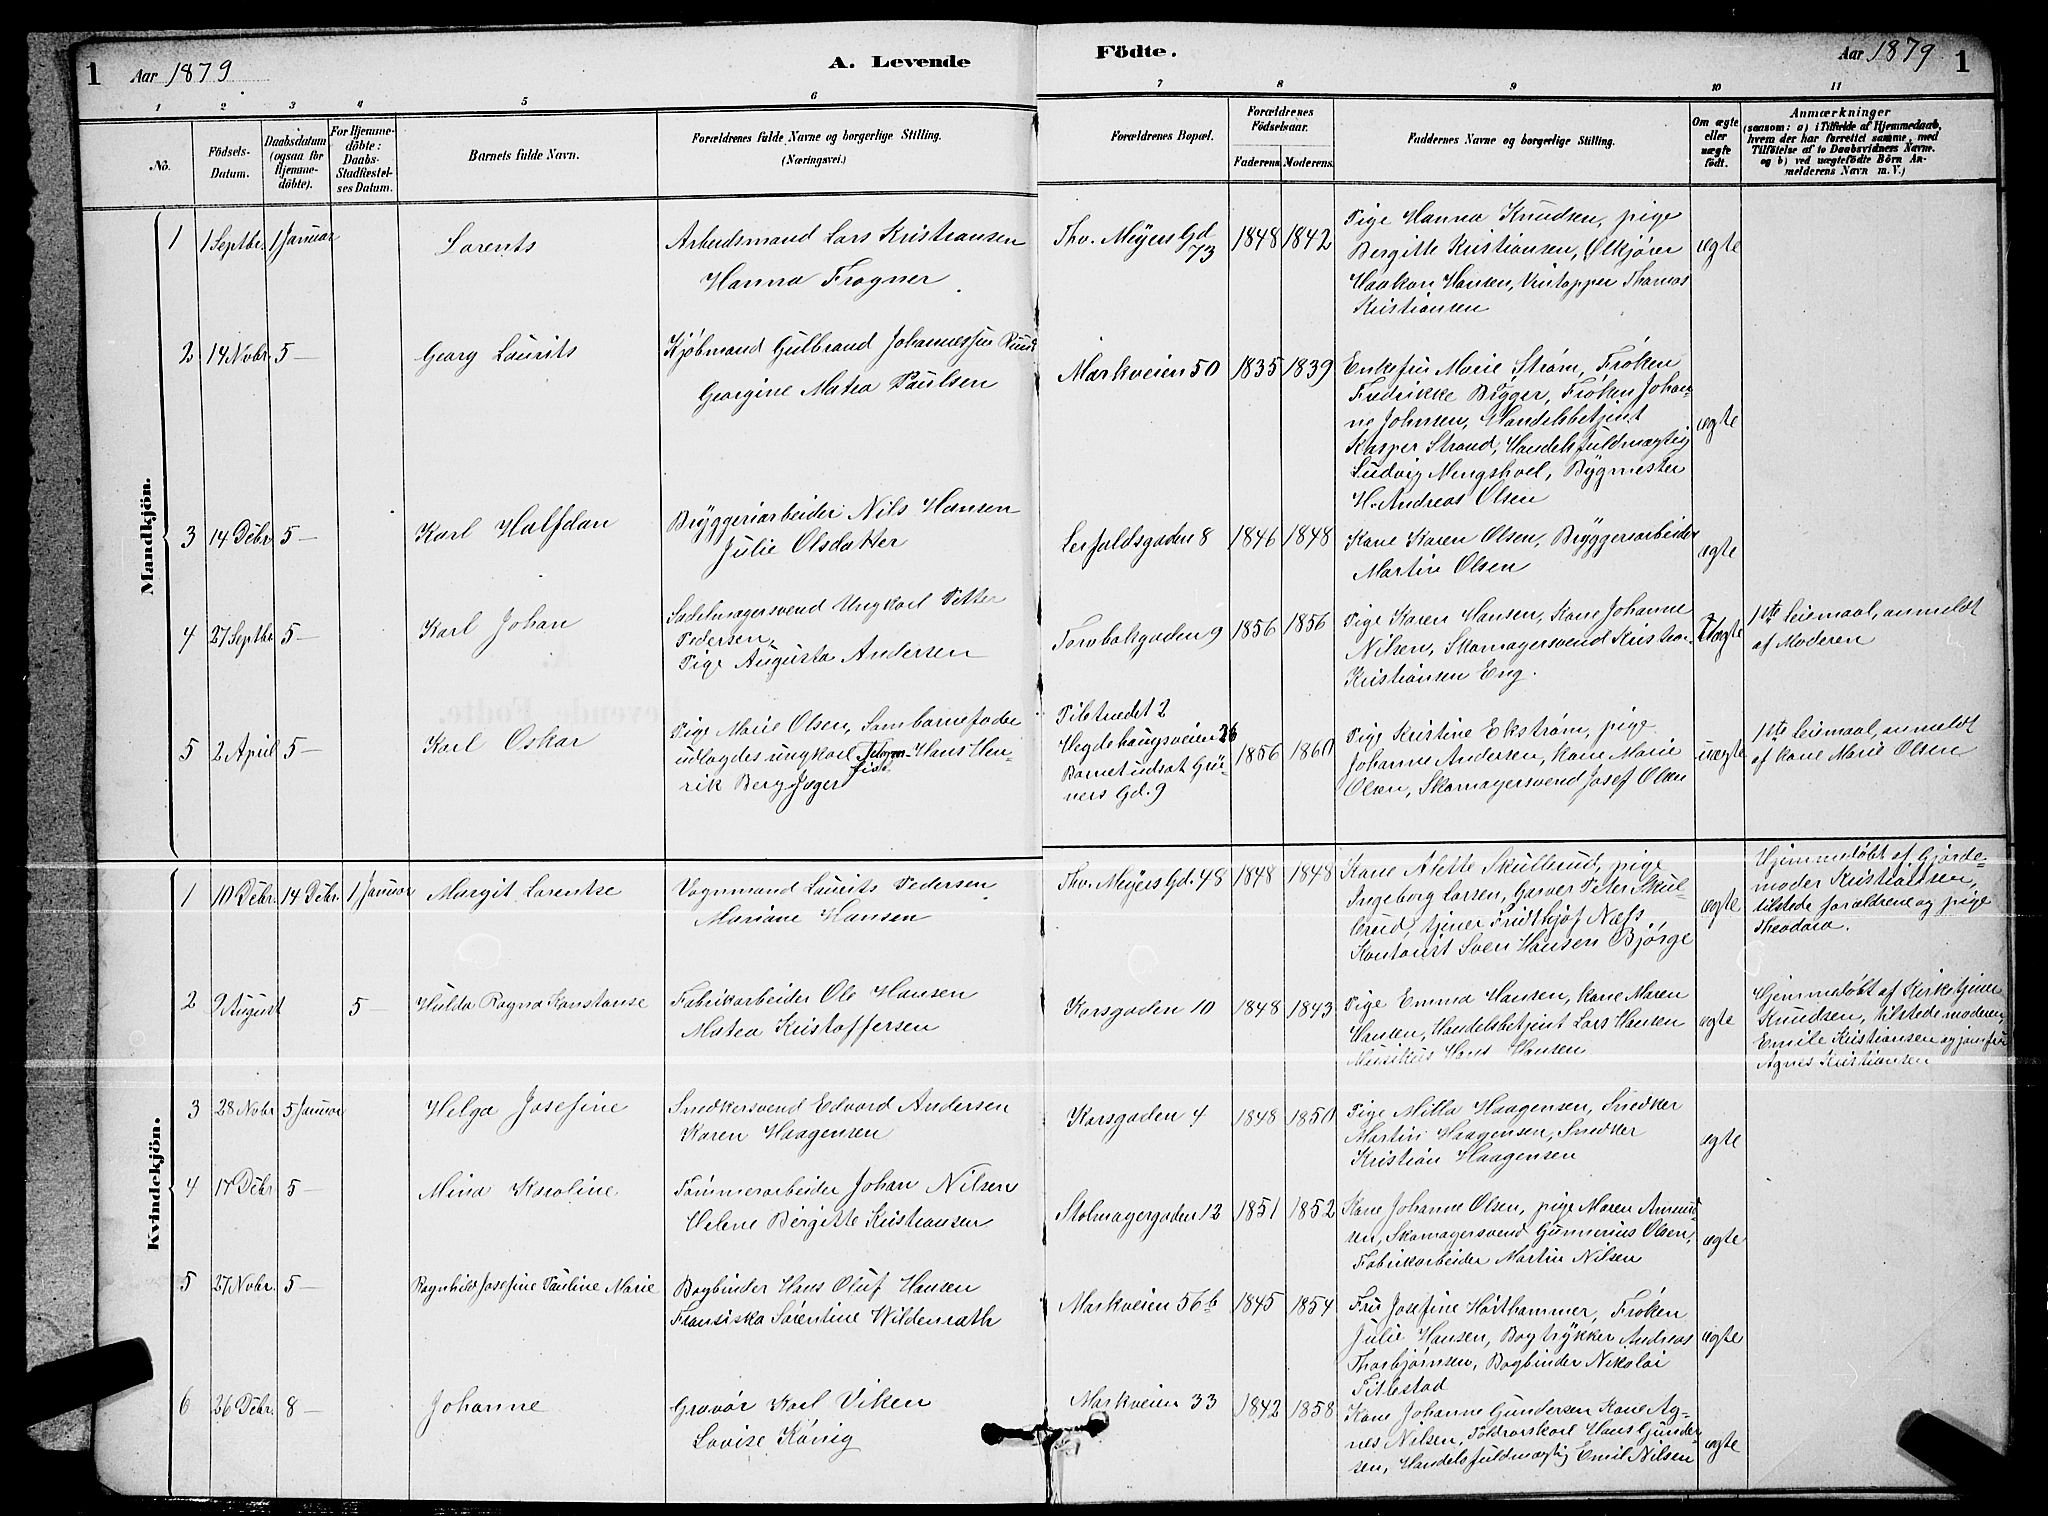 1 Aar 1879 A. Levende Födte. Aar 1879 1
1 2 3 4 5 6 7 8 9 10 11
No.
Födsels-
Datum.
Daabsdatum
(ogsaa for
Hjemme-
döbte).
For Hjemme-
döbte:
Daabs-
Stadfæstel-
ses Datum.
Barnets fulde Navn.
Forældrenes fulde Navne og borgerlige Stilling.
(Næringsvei.)
Forældrenes Bopæl.
Forældrenes
Födselsaar.
Faderens. Moderens.
Faddernes Navne og borgerlige Stilling.
Om ægte
eller
uægte
födt.
Anmærkninger
(saasom: a) i Tilfælde af Hjemmedaab,
hvem der har forrettet samme, med
Tilföielse af to Daabsvidners Navne.
og b) ved uægtefödte Börn An-
melderens Navn m.V.)
Mandkjön.
1 1 Septbr. 1 Januar Lorents
Arbeidsmand Lars Kristiansen
Hanna Frogner
Thv. Meyers Gd
73
1848 1842
Pige Hanna Knudsen, pige
Bergitte Kristiansen, Ølkjører
Haakon Hansen, Vintapper Thomas
Kristiansen
ægte
2 14 Nobr. 5 — Georg Laurits
Kjøbmand Gulbrand Johannessen Ruud
Georgine Matea Paulsen
Markveien 50 1835 1839
Enkefru Marie Strøm, Frøken
Fredrikke Bygger, Frøken Johan-
ne Johnsen, Handelsbetjent
Kasper Strand, Handelsfuldmægtig
Ludvig Mengshoel, Bygmester
H. Andreas Olsen
ægte
3 14 Debr. 5 — Karl Halfdan
Bryggeriarbeider Nils Hansen
Julie Olsdatter
Leirfaldsgaden 8 1846 1848
Kone Karen Olsen, Bryggeriarbeider
Martin Olsen
ægte
4 27 Septbr. 5 — Karl Johan
Sadelmagersvend Ungkarl Petter
Pedersen,
Pige Augusta Andersen
Torvbakgaden 9 1856 1856
Pige Karen Hansen, Kone Johanne
Nilsen, Skomagersvend Kristian
Kristiansen Eng.
Uægte
1ste leiemaal, anmeldt
af Moderen
5 2 April 5 — Karl Oskar
Pige Marie Olsen, Som barnefader
udlagdes ungkarl Hans Hen-
rik Berg Jæger
Pilestrædet 2
Hegdehaugsveien 26
Barnet udsat Grü-
ners Gd. 9
1856 1860
Pige Kristine Ekstrøm, pige
Johanne Andersen, kone Marie
Olsen, Skomagersvend Josef Olsen
uægte
1ste leiemaal, anmeldt
af kone Marie Olsen
Kvindekjön.
1 10 Debr. 14 Debr. 1 Januar Margit Lorentse
Vognmand Laurits Pedersen
Mariane Hansen
Thv. Meyers Gd. 48 1848 1848
Kone Alette Skullerud, pige
Ingeborg Larsen, Garver Peter Skul-
lerud, tjener Fridthjof Næss,
Kontorist Sven Hansen Bjørge
ægte
Hjemmedøbt af Gjorde-
moder Kristiansen,
tilstede forældrene og pige
Theodora.
2 9 August 5 — Hulda Ragna Konstanse
Fabrikarbeider Ole Hansen
Matea Kristoffersen
Korsgaden 10 1848 1843
Pige Emma Hansen, kone Maren
Hansen, Handelsbetjent Lars Hansen
Musikus Hans Hansen
ægte
Hjemmedøbt af Kirketjener
Knudsen, tilstede moderen,
Emilie Kristiansen og jomfru
Agnes Kristiansen
3 28 Nobr. 5 Januar Helga Josefine
Snedkersvend Edvard Andersen
Karen Haagensen
Korsgaden 4 1848 1850
Pige Milla Haagensen, Snedker
Martin Haagensen, Snedker
Kristian Haagensen
ægte
4 17 Debr. 5 — Mina Karoline
Tømmerarbeider Johan Nilsen
Helene Birgitte Kristiansen
Stolmagergaden 12 1851 1852
Kone Johanne Olsen, pige Maren Amund-
sen, Skomagersvend Gunnerius Olsen,
Fabrikarbeider Martin Nilsen
ægte
5 27 Nobr. 5 — Ragnhild Josefine Pauline Marie
Bogbinder Hans Oluf Hansen
Fransiska Sørentine Wildenrath
Markveien 56b 1845 1854
Fru Josefine Horthammer, Frøken
Julie Hansen, Bogtrykker Andreas
Thorbjørnsen, Bogbinder Nikolai
Titlestad
ægte
6 26 Debr. 8 — Johanne
Gravør Karl Viken
Lovise König
Markveien 33 1842 1858
Kone Johanne Gundersen Kone Ag-
nes Nilsen, Toldrorskarl Hans Gunder-
sen, Handelsfuldmægtig Emil Nilsen
ægte